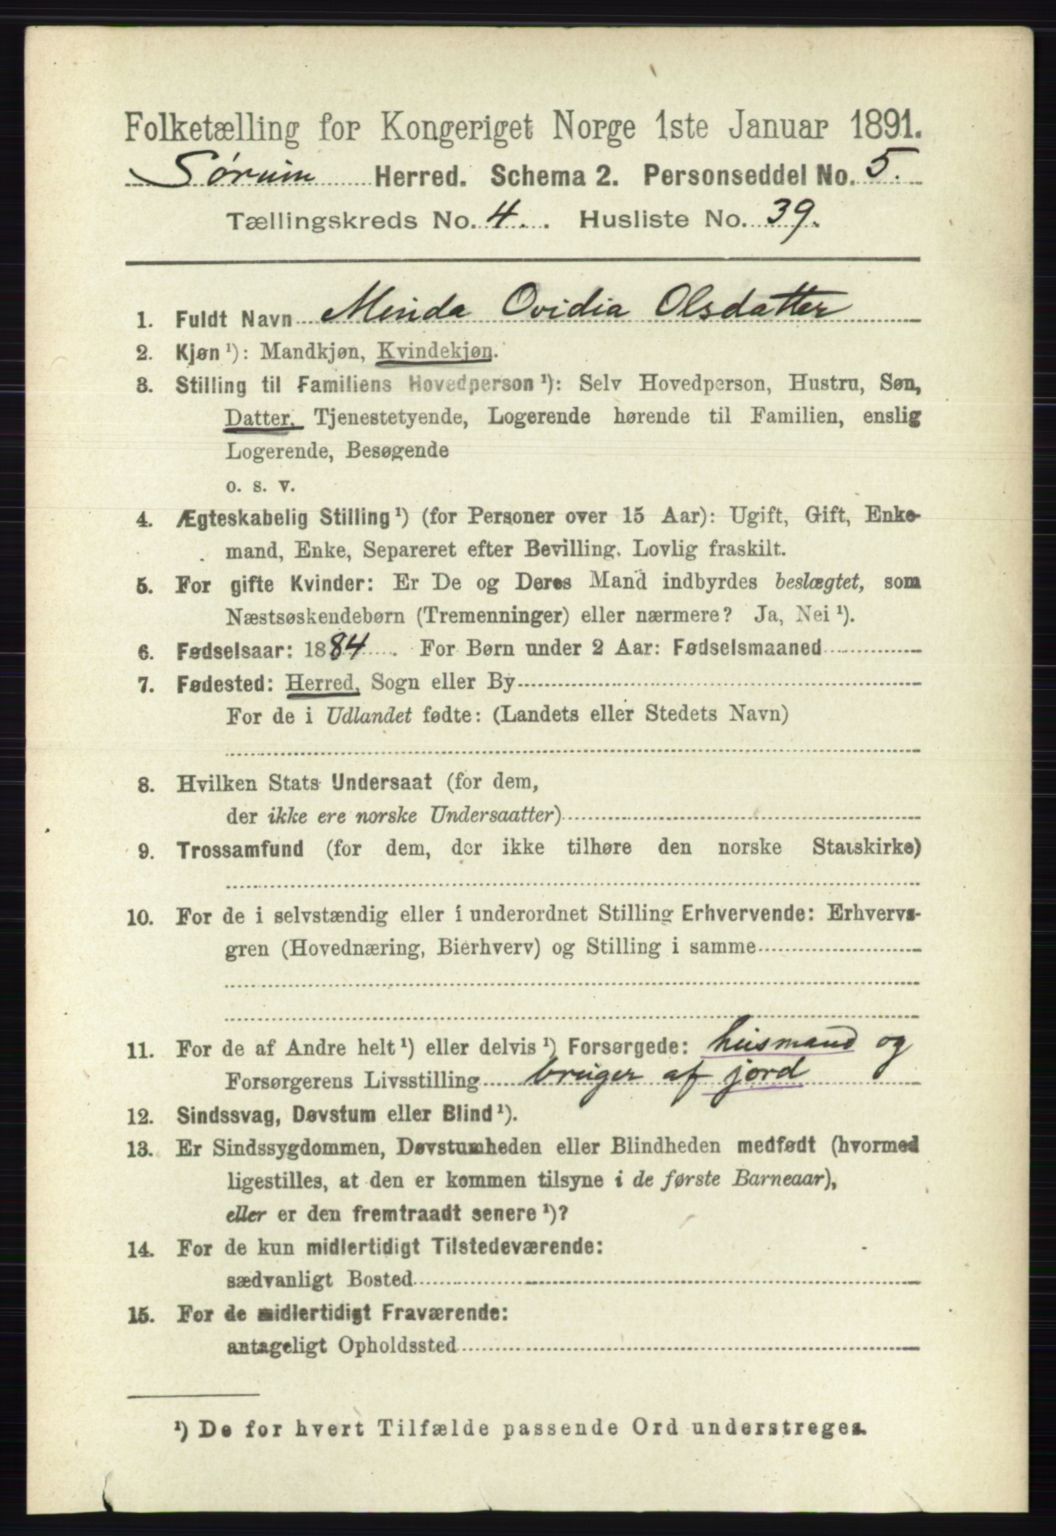 Folketælling for Kongeriget Norge 1ste Januar 1891.
Sørum Herred. Schema 2. Personseddel No. 5.
Tællingskreds No. 4. Husliste No. 39.
1. Fuldt Navn Minda Ovidia Olsdatter
2. Kjøn ¹): Mandkjøn, Kvindekjøn.
3. Stilling til Familiens Hovedperson ¹): Selv Hovedperson, Hustru, Søn,
Datter, Tjenestetyende, Logerende hørende til Familien, enslig
Logerende, Besøgende
o. s. v.
4. Ægteskabelig Stilling ¹) (for Personer over 15 Aar): Ugift, Gift, Enke-
mand, Enke, Separeret efter Bevilling. Lovlig fraskilt.
5. For gifte Kvinder: Er De og Deres Mand indbyrdes beslægtet, som
Næstsøskendebørn (Tremenninger) eller nærmere? Ja, Nei ¹).
6. Fødselsaar: 1884. For Børn under 2 Aar: Fødselsmaaned
7. Fødested: Herred, Sogn eller By
For de i Udlandet fødte: (Landets eller Stedets Navn)
8. Hvilken Stats Undersaat (for dem,
der ikke ere norske Undersaatter)
9. Trossamfund (for dem, der ikke tilhøre den norske Statskirke)
10. For de i selvstændig eller i underordnet Stilling Erhvervende: Erhvervs-
gren (Hovednæring, Bierhverv) og Stilling i samme
11. For de af Andre helt ¹) eller delvis ¹) Forsørgede: husmand og
Forsørgerens Livsstilling bruger af jord
12. Sindssvag, Døvstum eller Blind ¹).
13. Er Sindssygdommen, Døvstumheden eller Blindheden medfødt (hvormed
ligestilles, at den er kommen tilsyne i de første Barneaar),
eller er den fremtraadt senere ¹)?
14. For de kun midlertidigt Tilstedeværende:
sædvanligt Bosted
15. For de midlertidigt Fraværende:
antageligt Opholdssted
¹) De for hvert Tilfælde passende Ord understreges.